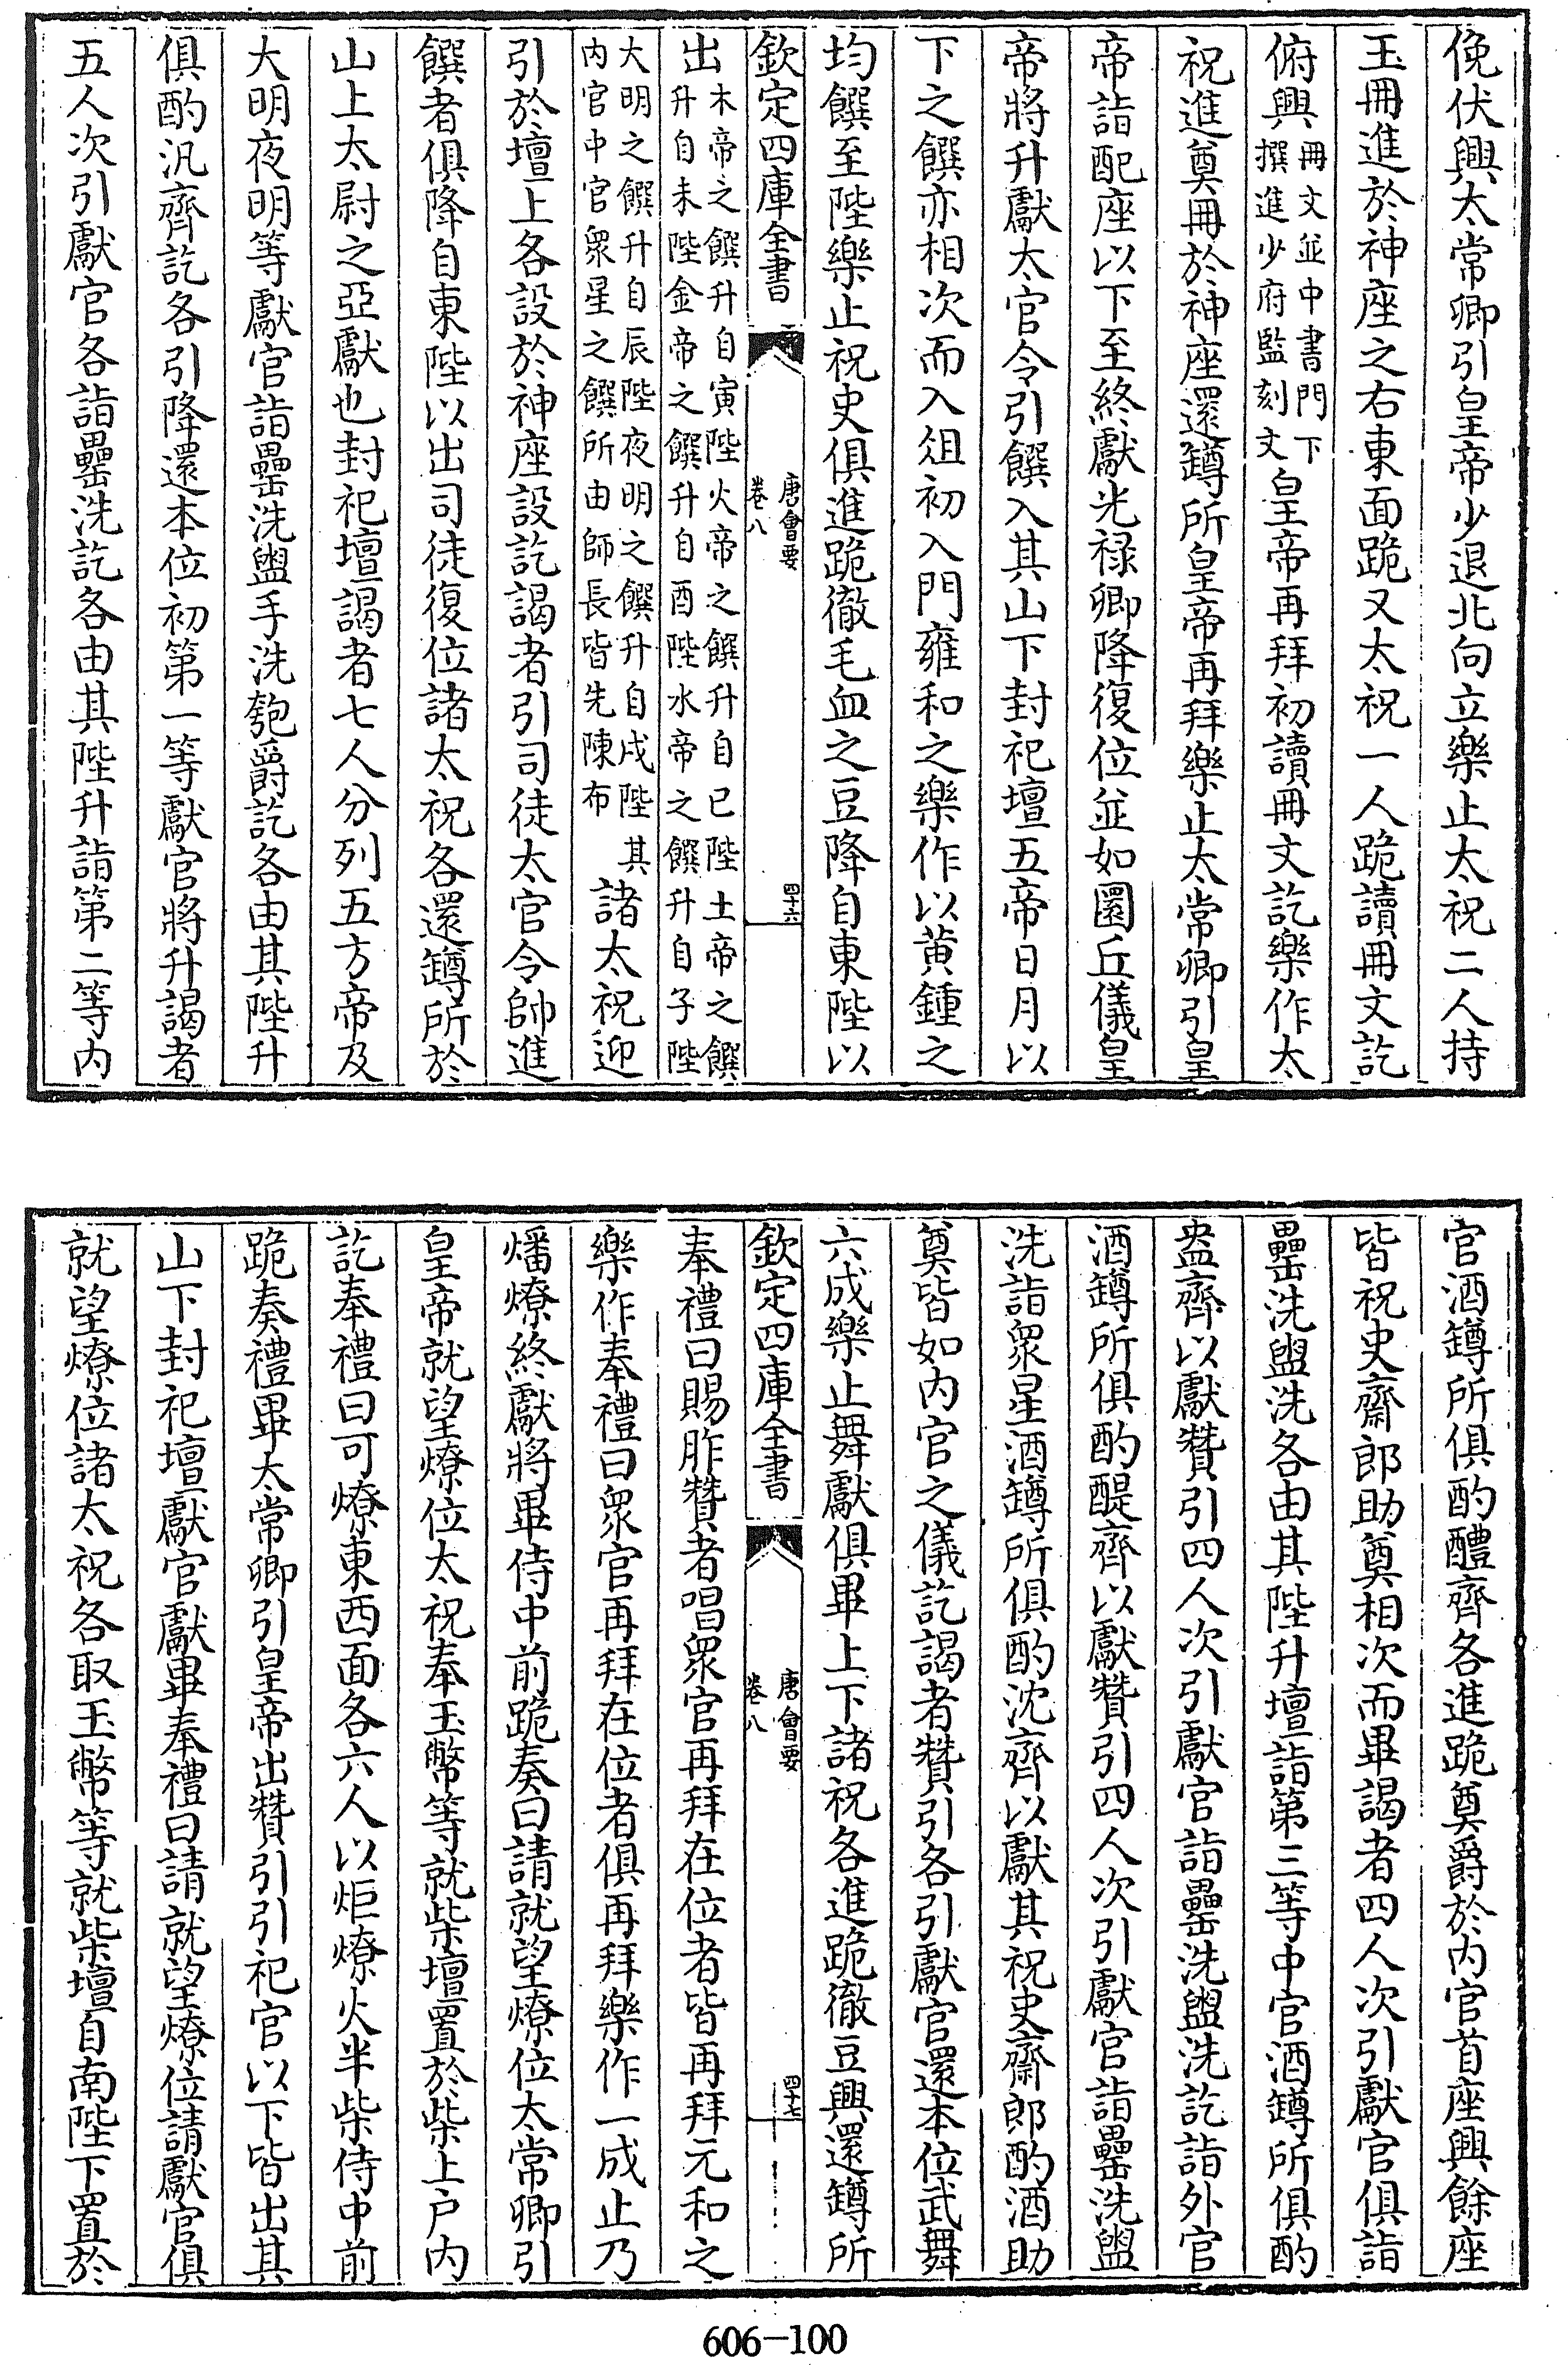 俛伏興太常卿引皇帝少退北向立樂止太祝二人持
玉冊進於神座之右東面跪又太祝一人跪讀冊文訖
俯興冊文並中書門下撰進少府監刻文皇帝再拜初讀冊文訖樂作太
祝進奠冊於神座還罇所皇帝再拜樂止太常卿引皇
帝詣配座以下至終獻光禄卿降復位並如圜丘儀皇
帝將升獻太官令引饌入其山下封祀壇五帝日月以
下之饌亦相次而入俎初入門雍和之樂作以黄鍾之
均饌至陛樂止祝史俱進跪徹毛血之豆降自東陛以
欽定四庫全書
唐會要
卷八
四十六
出木帝之饌升自寅陛火帝之饌升自巳陛土帝之饌
升自未陛金帝之饌升自酉陛水帝之饌升自子陛
大明之饌升自辰陛夜明之饌升自戌陛其
内官中官衆星之饌所由師長皆先陳布諸太祝迎
引於壇上各設於神座設訖謁者引司徒太官令帥進
饌者俱降自東陛以出司徒復位諸太祝各還罇所於
山上太尉之亞獻也封祀壇謁者七人分列五方帝及
大明夜明等獻官詣罍洗盥手洗匏爵訖各由其陛升
俱酌汎齊訖各引降還本位初第一等獻官將升謁者
五人次引獻官各詣罍洗訖各由其陛升詣第二等内
官酒罇所俱酌醴齊各進跪奠爵於内官首座興餘座
皆祝史齋郎助奠相次而畢謁者四人次引獻官俱詣
罍洗盥洗各由其陛升壇詣第三等中官酒罇所俱酌
盎齊以獻贊引四人次引獻官詣罍洗盥洗訖詣外官
酒罇所俱酌醍齊以獻贊引四人次引獻官詣罍洗盥
洗詣衆星酒罇所俱酌沈齊以獻其祝史齋郎酌酒助
奠皆如内官之儀訖謁者贊引各引獻官還本位武舞
六成樂止舞獻俱畢上下諸祝各進跪徹豆興還罇所
欽定四庫全書
唐會要
卷八
四十七
奉禮曰賜胙贊者唱衆官再拜在位者皆再拜元和之
樂作奉禮曰衆官再拜在位者俱再拜樂作一成止乃
燔燎終獻將畢侍中前跪奏曰請就望燎位太常卿引
皇帝就望燎位太祝奉玉幣等就柴壇置於柴上户内
訖奉禮曰可燎東西面各六人以炬燎火半柴侍中前
跪奏禮畢太常卿引皇帝出贊引引祀官以下皆出其
山下封祀壇獻官獻畢奉禮曰請就望燎位請獻官俱
就望燎位諸太祝各取玉幣等就柴壇自南陛下置於
606-100